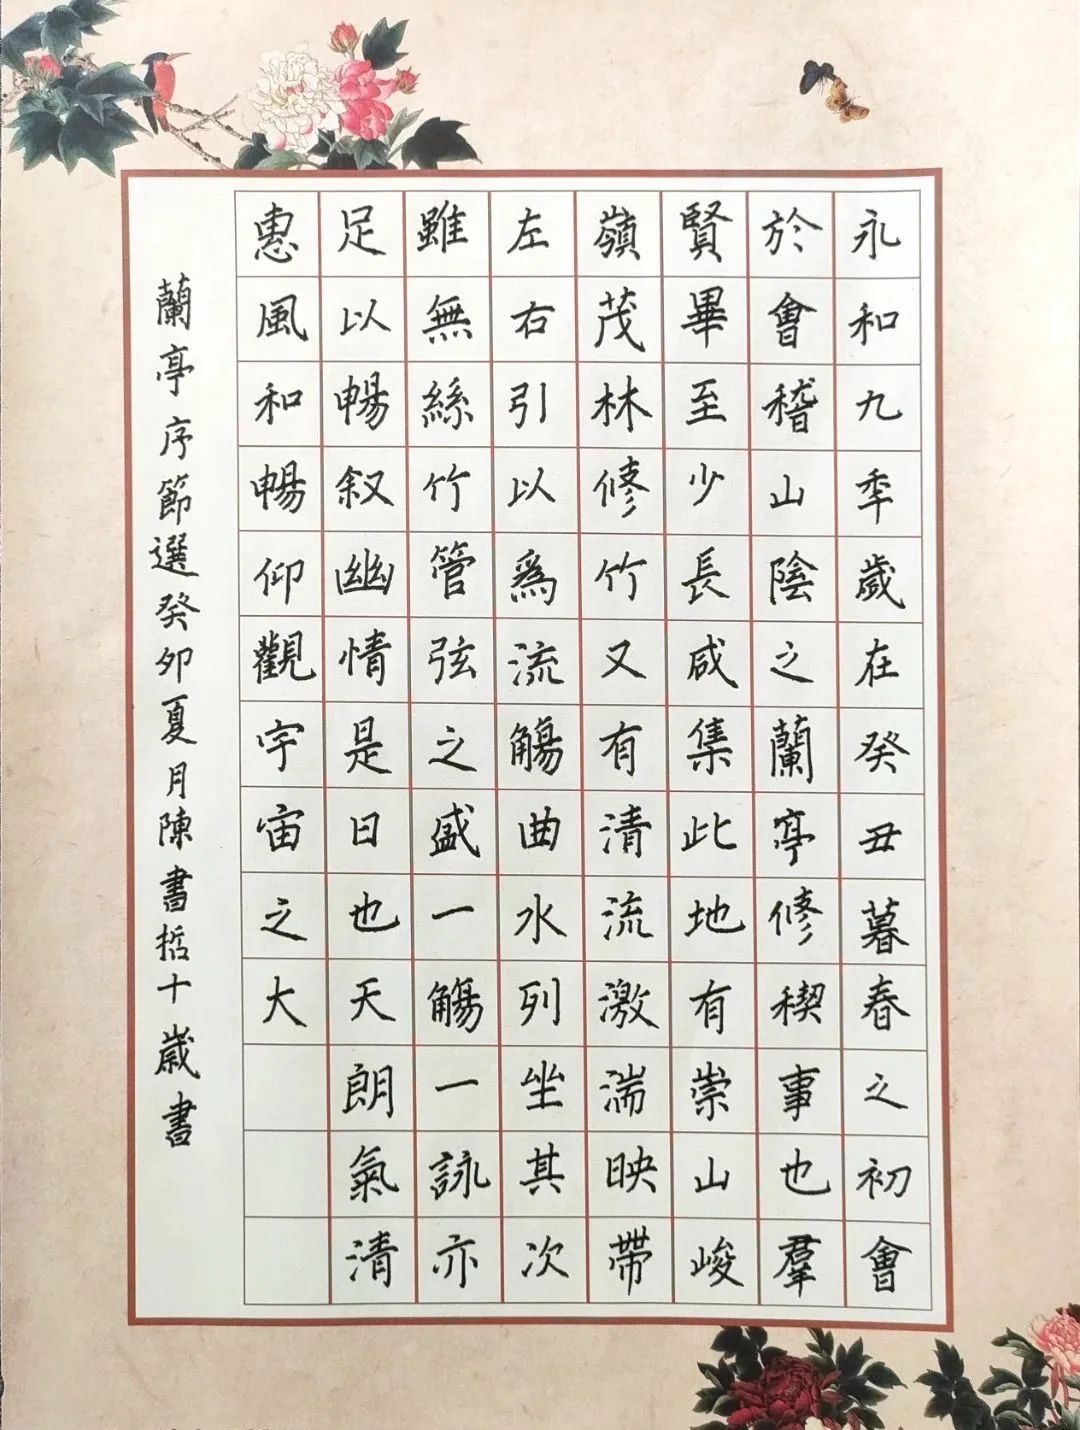 永和九年歲在癸丑暮春之初會
於會稽山陰之蘭亭修稧事也羣
賢畢至少長咸集此地有崇山峻
嶺茂林修竹又有清流激湍映帶
左右引以爲流觴曲水列坐其次
雖無絲竹管弦之盛一觴一詠亦
足以暢叙幽情是日也天朗氣清
惠風和暢仰觀宇宙之大
蘭亭序節選癸卯夏月陳書哲十歲書